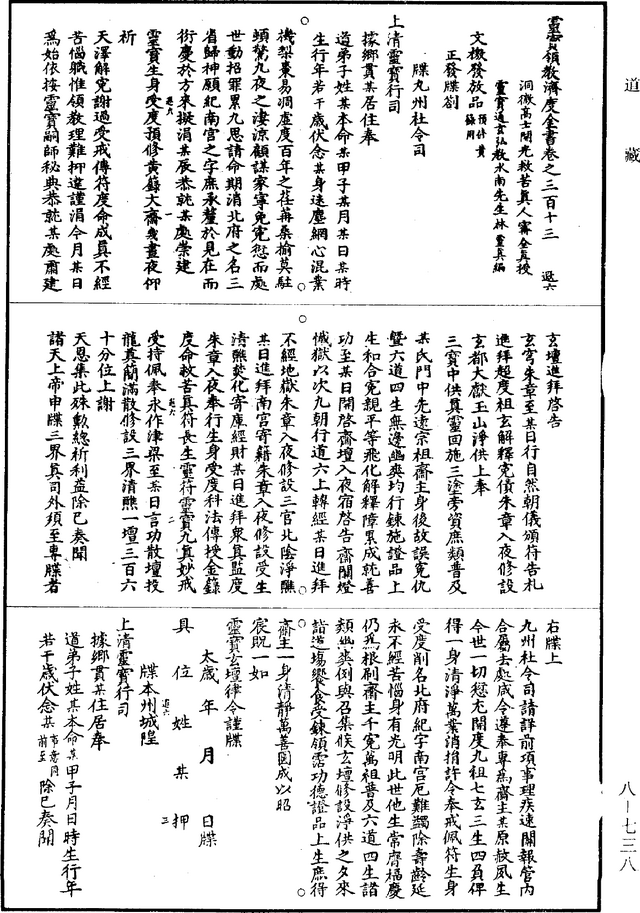 道藏
靈寶領教濟度全書卷之三百十三 退六
洞微高士開光救苦真人甯全真授
靈寶通玄弘教水南先生林靈真編
文檄發放品 預修黃籙用
正發牒劄
牒九州社令司
上清靈寶行司
據鄉貫某居住奉
道弟子姓某本命某甲子某月某日某時
生行年若干歲伏念某身速塵網心混業
機梨棗易凋虛度百年之荏苒桑榆莫駐
頻驚九夜之淒涼顧謀家寧免寃愆而處
世動招罪累九思請命期消北府之名三
省歸神願紀南宮之字庶承釐於見在而
衍慶於方來擬涓某辰恭就某處崇建
靈寶生身受度預修黃籙大齋幾晝夜仰
祈
天澤解免謝過受戒傳符度命成真不經
苦惱職惟領教理難抑違謹涓今月某日
為始依按靈寶嗣師秘典恭就某處肅建
玄壇進拜啓告
玄穹朱章至某日行自然朝儀頒符告札
進拜超度祖玄解釋寃債朱章入夜修設
玄都大獻玉山淨供上奉
三寶中供真靈回施三塗旁資庶類普及
某氏門中先遠宗祖齋主身後故誤寃仇
暨六道四生無邊幽爽均行鍊施證品上
生和合寃親平等飛化解釋障累成就善
功至某日開啓齋壇入夜宿啓告齋關燈
懺獄以次九朝行道六上轉經某日進拜
不經地獄朱章入夜修設三官北陰淨醮
某日進拜南宮寄籍朱章入夜修設受生
清醮焚化寄庫經財某日進拜衆真監度
朱章入夜奉行生身受度科法傳授金籙
度命救苦真符長生靈符靈寶九真妙戒
受持佩奉永作津梁至某日言功散壇投
龍真簡滿散修設三界清醮一壇三百六
十分位上謝
天恩集此殊勳總祈利益除已奏聞
諸天上帝申牒三界真司外須至專牒者
右牒上
九州社令司請詳前項事理疾速關報管內
合屬去處咸令遵奉專為齋主某原赦夙生
今世一切愆尤開度九祖七玄三生四負俾
得一身清淨萬業消捐許令奉戒佩符生身
受度削名北府紀字南宮厄難蠲除壽齡延
永不經苦惱身有光明此世他生常膺福慶
仍為根刷齋主千寃萬祖普及六道四生諸
類幽爽例與召集候玄壇修設淨供之夕來
詣道場饗食受鍊領霑功德證品上生庶得
齋主一身清靜萬善圓成以昭
宸貺一如
靈寶玄壇律令謹牒
太歲 年 月 日牒
具位姓某押
牒本州城隍
上清靈寶行司
據鄉貫某住居奉
道弟子姓某本命某甲子月日時生行年
若干歲伏念某 事意同前至 除已奏聞
八一七三八